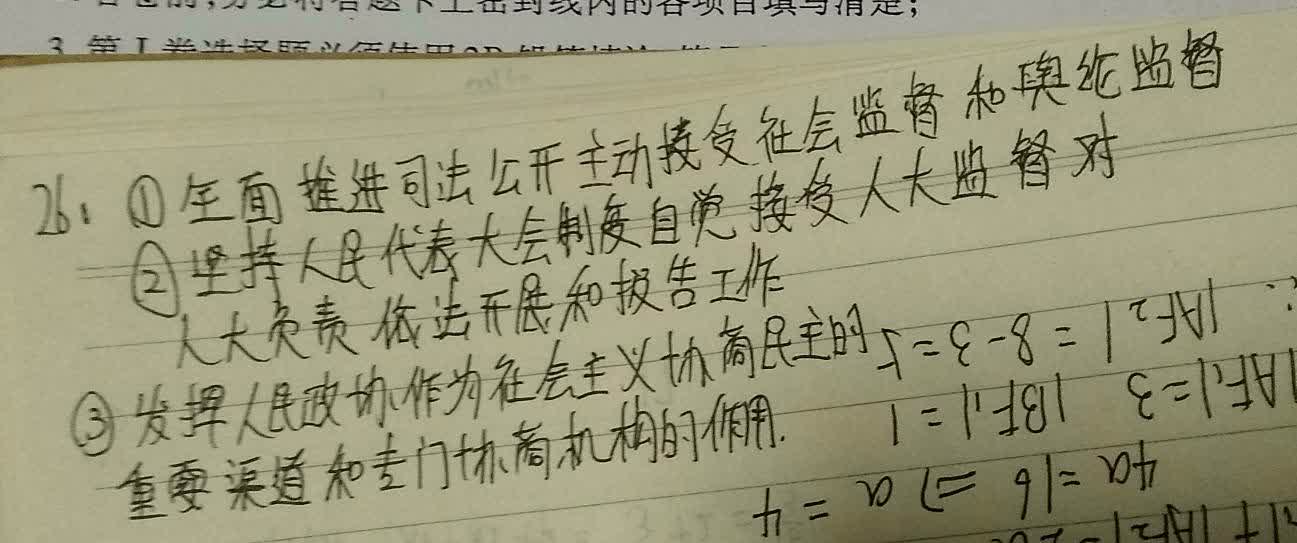 3. 第Ⅰ卷选择题必须使用2B铅笔填涂
26. ①全面推进司法公开主动接受社会监督和舆论监督
②坚持人民代表大会制度自觉接受人大监督对
人大负责依法开展和报告工作
③发挥人民政协作为社会主义协商民主的
重要渠道和专门协商机构的作用.
∴ |AF₂| = 8-3=5
|AF₁|=3 |BF₁|=1
4a=16 ⇒ a=4